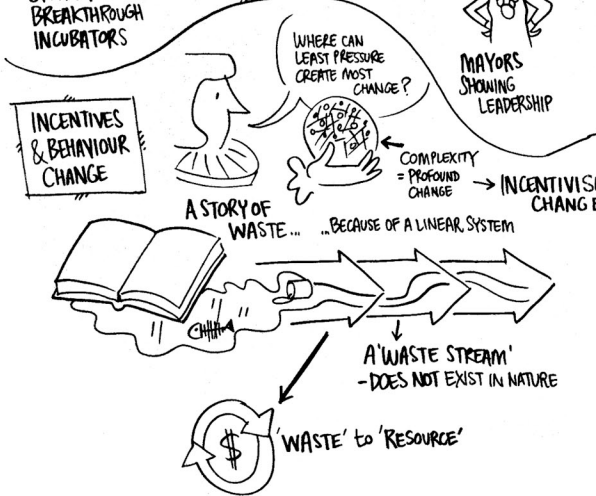 BREAKTHROUGH
INCUBATORS
WHERE CAN
LEAST PRESSURE
CREATE MOST
CHANGE?
MAYORS
SHOWING
LEADERSHIP
INCENTIVES
& BEHAVIOUR
CHANGE
COMPLEXITY
= PROFOUND
CHANGE
→ INCENTIVIS
CHANGE
A STORY OF
WASTE... ...BECAUSE OF A LINEAR SYSTEM
A 'WASTE STREAM'
- DOES NOT EXIST IN NATURE
$
'WASTE' to 'RESOURCE'